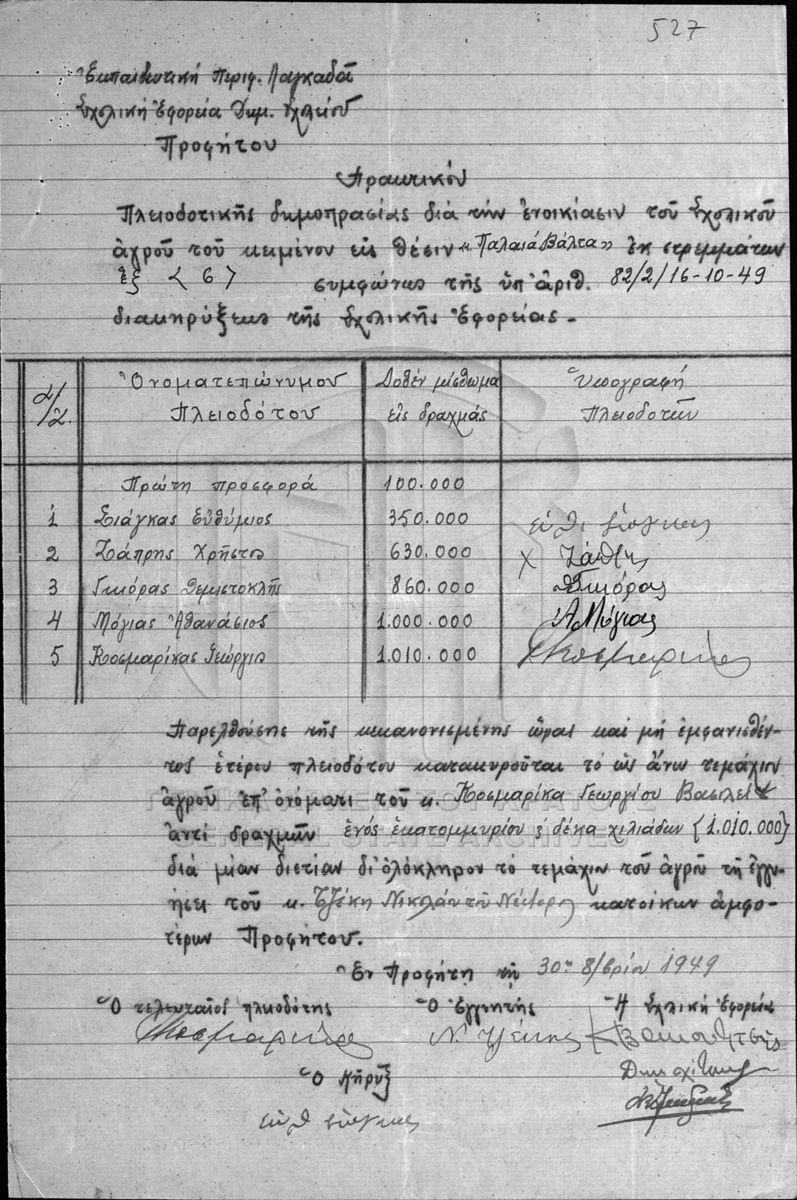 527
Ἐκπαιδευτική Περιφ. Λαγκαδᾶ
Σχολική Ἐφορεία Δημ. Σχολείου
Προφήτου
Πρακτικόν
Πλειοδοτικῆς δημοπρασίας διά τήν ἐνοικίασιν τοῦ Σχολικοῦ
ἀγροῦ τοῦ κειμένου εἰς θέσιν "Παλαιά Βάλτα" ἐκ στρεμμάτων
ἕξ < 6 > συμφώνως τῆς ὑπ' ἀριθ. 82/2/16-10-49
διακηρύξεως τῆς Σχολικῆς Ἐφορείας.-
α/α. Ὀνοματεπώνυμον Πλειοδότου Δοθέν μίσθωμα εἰς δραχμάς Ὑπογραφή Πλειοδοτῶν
Πρώτη προσφορά 100.000
1 Σιάγκας Εὐθύμιος 350.000 εὐθ σιαγκας
2 Ζάπρης Χρῆστος 630.000 Χ
3 Γκιόρας Θεμιστοκλῆς 860.000 Θ Γκιόρας
4 Μόγιας Ἀθανάσιος 1.000.000 Α Μόγιας
5 Κοσμαρίκας Γεώργιος 1.010.000 Κοσμαρίκας
Παρελθούσης τῆς κεκανονισμένης ὥρας καί μή ἐμφανισθέν-
τος ἑτέρου πλειοδότου κατακυροῦται τό ὡς ἄνω τεμάχιον
ἀγροῦ ἐπ' ὀνόματι τοῦ κ. Κοσμαρίκα Γεωργίου Βασιλεί
ἀντί δραχμῶν ἑνός ἑκατομμυρίου ϛ δέκα χιλιάδων {1.010.000}
διά μίαν διετίαν δι' ὁλόκληρον τό τεμάχιον τοῦ ἀγροῦ τῇ ἐγγυ-
ήσει τοῦ κ. Τζέκη Νικολάου τοῦ Νέστορος κατοίκων ἀμφο-
τέρων Προφήτου.
Ἐν Προφήτῃ τῇ 30ῃ 8/βρίου 1949
Ὁ τελευταῖος πλειοδότης Ὁ Ἐγγυητής Ἡ Σχολική Ἐφορεία
Κοσμαρίκας Ν. Τζέκης
Ὁ Κῆρυξ
εὐθ σιαγκας
ΓΕΝΙΚΑ ΑΡΧΕΙΑ ΤΟΥ ΚΡΑΤΟΥΣ
GENERAL STATE ARCHIVES